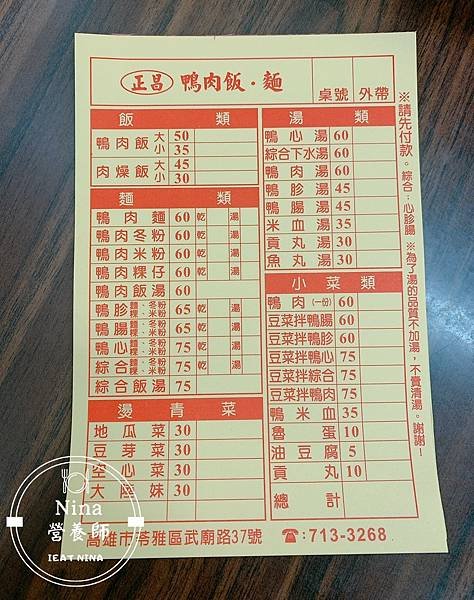 正昌 鴨肉飯・麵
桌號 外帶
飯類
鴨肉飯 大 50
小 35
肉燥飯 大 45
小 30
麵類
鴨肉麵 60 乾 湯
鴨肉冬粉 60 乾 湯
鴨肉米粉 60 乾 湯
鴨肉粿仔 60 乾 湯
鴨肉飯湯 60
鴨胗 麵、冬粉 粿、米粉 65 乾 湯
鴨腸 麵、冬粉 粿、米粉 65 乾 湯
鴨心 麵、冬粉 粿、米粉 75 乾 湯
綜合 麵、冬粉 粿、米粉 75 乾 湯
綜合飯湯 75
燙青菜
地瓜菜 30
豆芽菜 30
空心菜 30
大陸妹 30
湯類
鴨心湯 60
綜合下水湯 60
鴨肉湯 60
鴨胗湯 45
鴨腸湯 45
米血湯 35
貢丸湯 30
魚丸湯 30
小菜類
鴨肉(一份) 60
豆菜拌鴨腸 60
豆菜拌鴨胗 60
豆菜拌鴨心 75
豆菜拌綜合 75
豆菜拌鴨肉 75
鴨米血 35
魯蛋 10
油豆腐 5
貢丸 10
總計
※請先付款。綜合:心胗腸 ※為了湯的品質不加湯,不賣清湯。謝謝!
高雄市苓雅區武廟路37號 ☎:713-3268
Nina
營養師
IEAT NINA